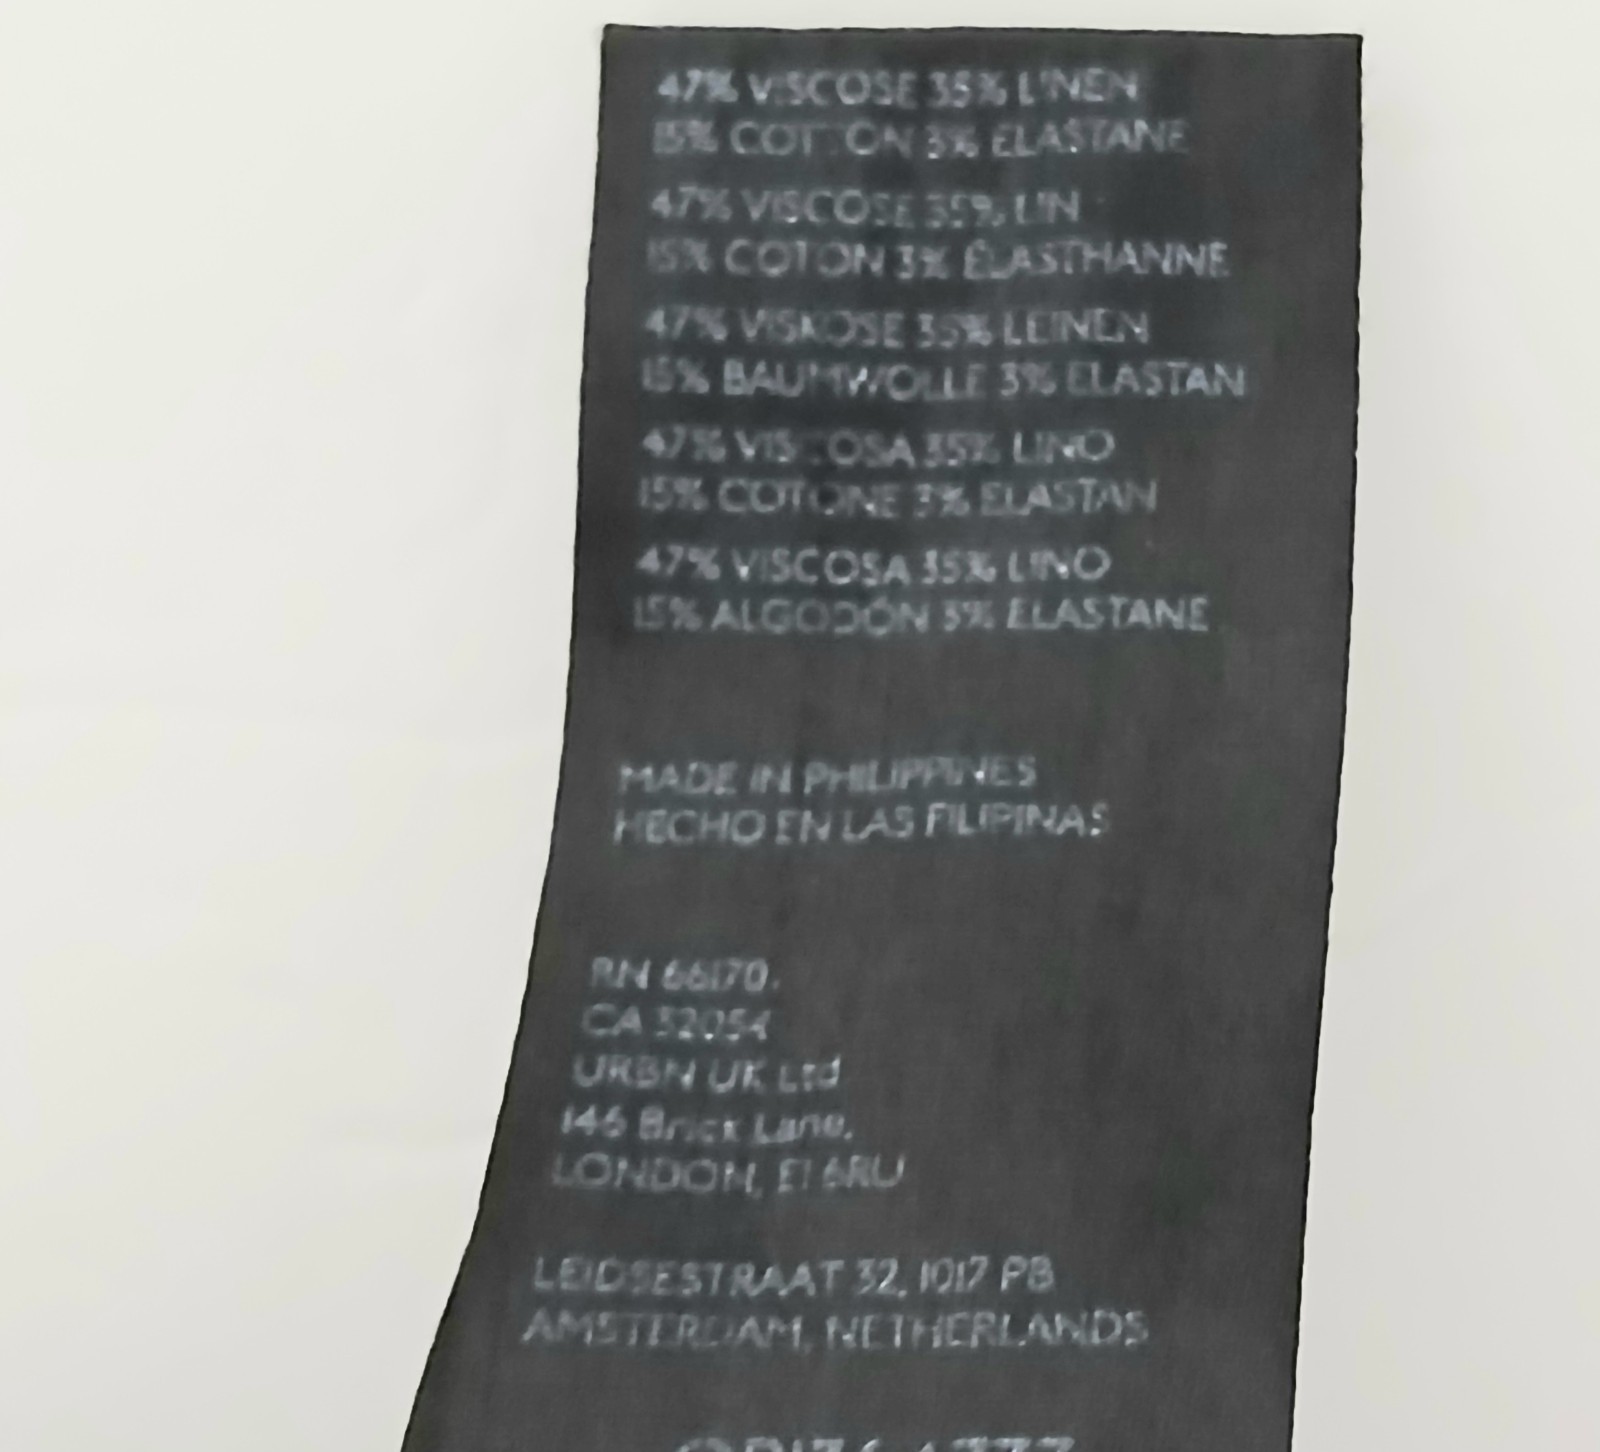 47% VISCOSE 35% LINEN
15% COTTON 3% ELASTANE
47% VISCOSE 35% LIN
15% COTON 3% ÉLASTHANNE
47% VISKOSE 35% LEINEN
15% BAUMWOLLE 3% ELASTAN
47% VISCOSA 35% LINO
15% COTONE 3% ELASTAN
47% VISCOSA 35% LINO
15% ALGODÓN 3% ELASTANE
MADE IN PHILIPPINES
HECHO EN LAS FILIPINAS
RN 66170.
CA 32054
URBN UK Ltd
146 Brick Lane,
LONDON, E1 6RU
LEIDSESTRAAT 32, 1017 PB
AMSTERDAM, NETHERLANDS